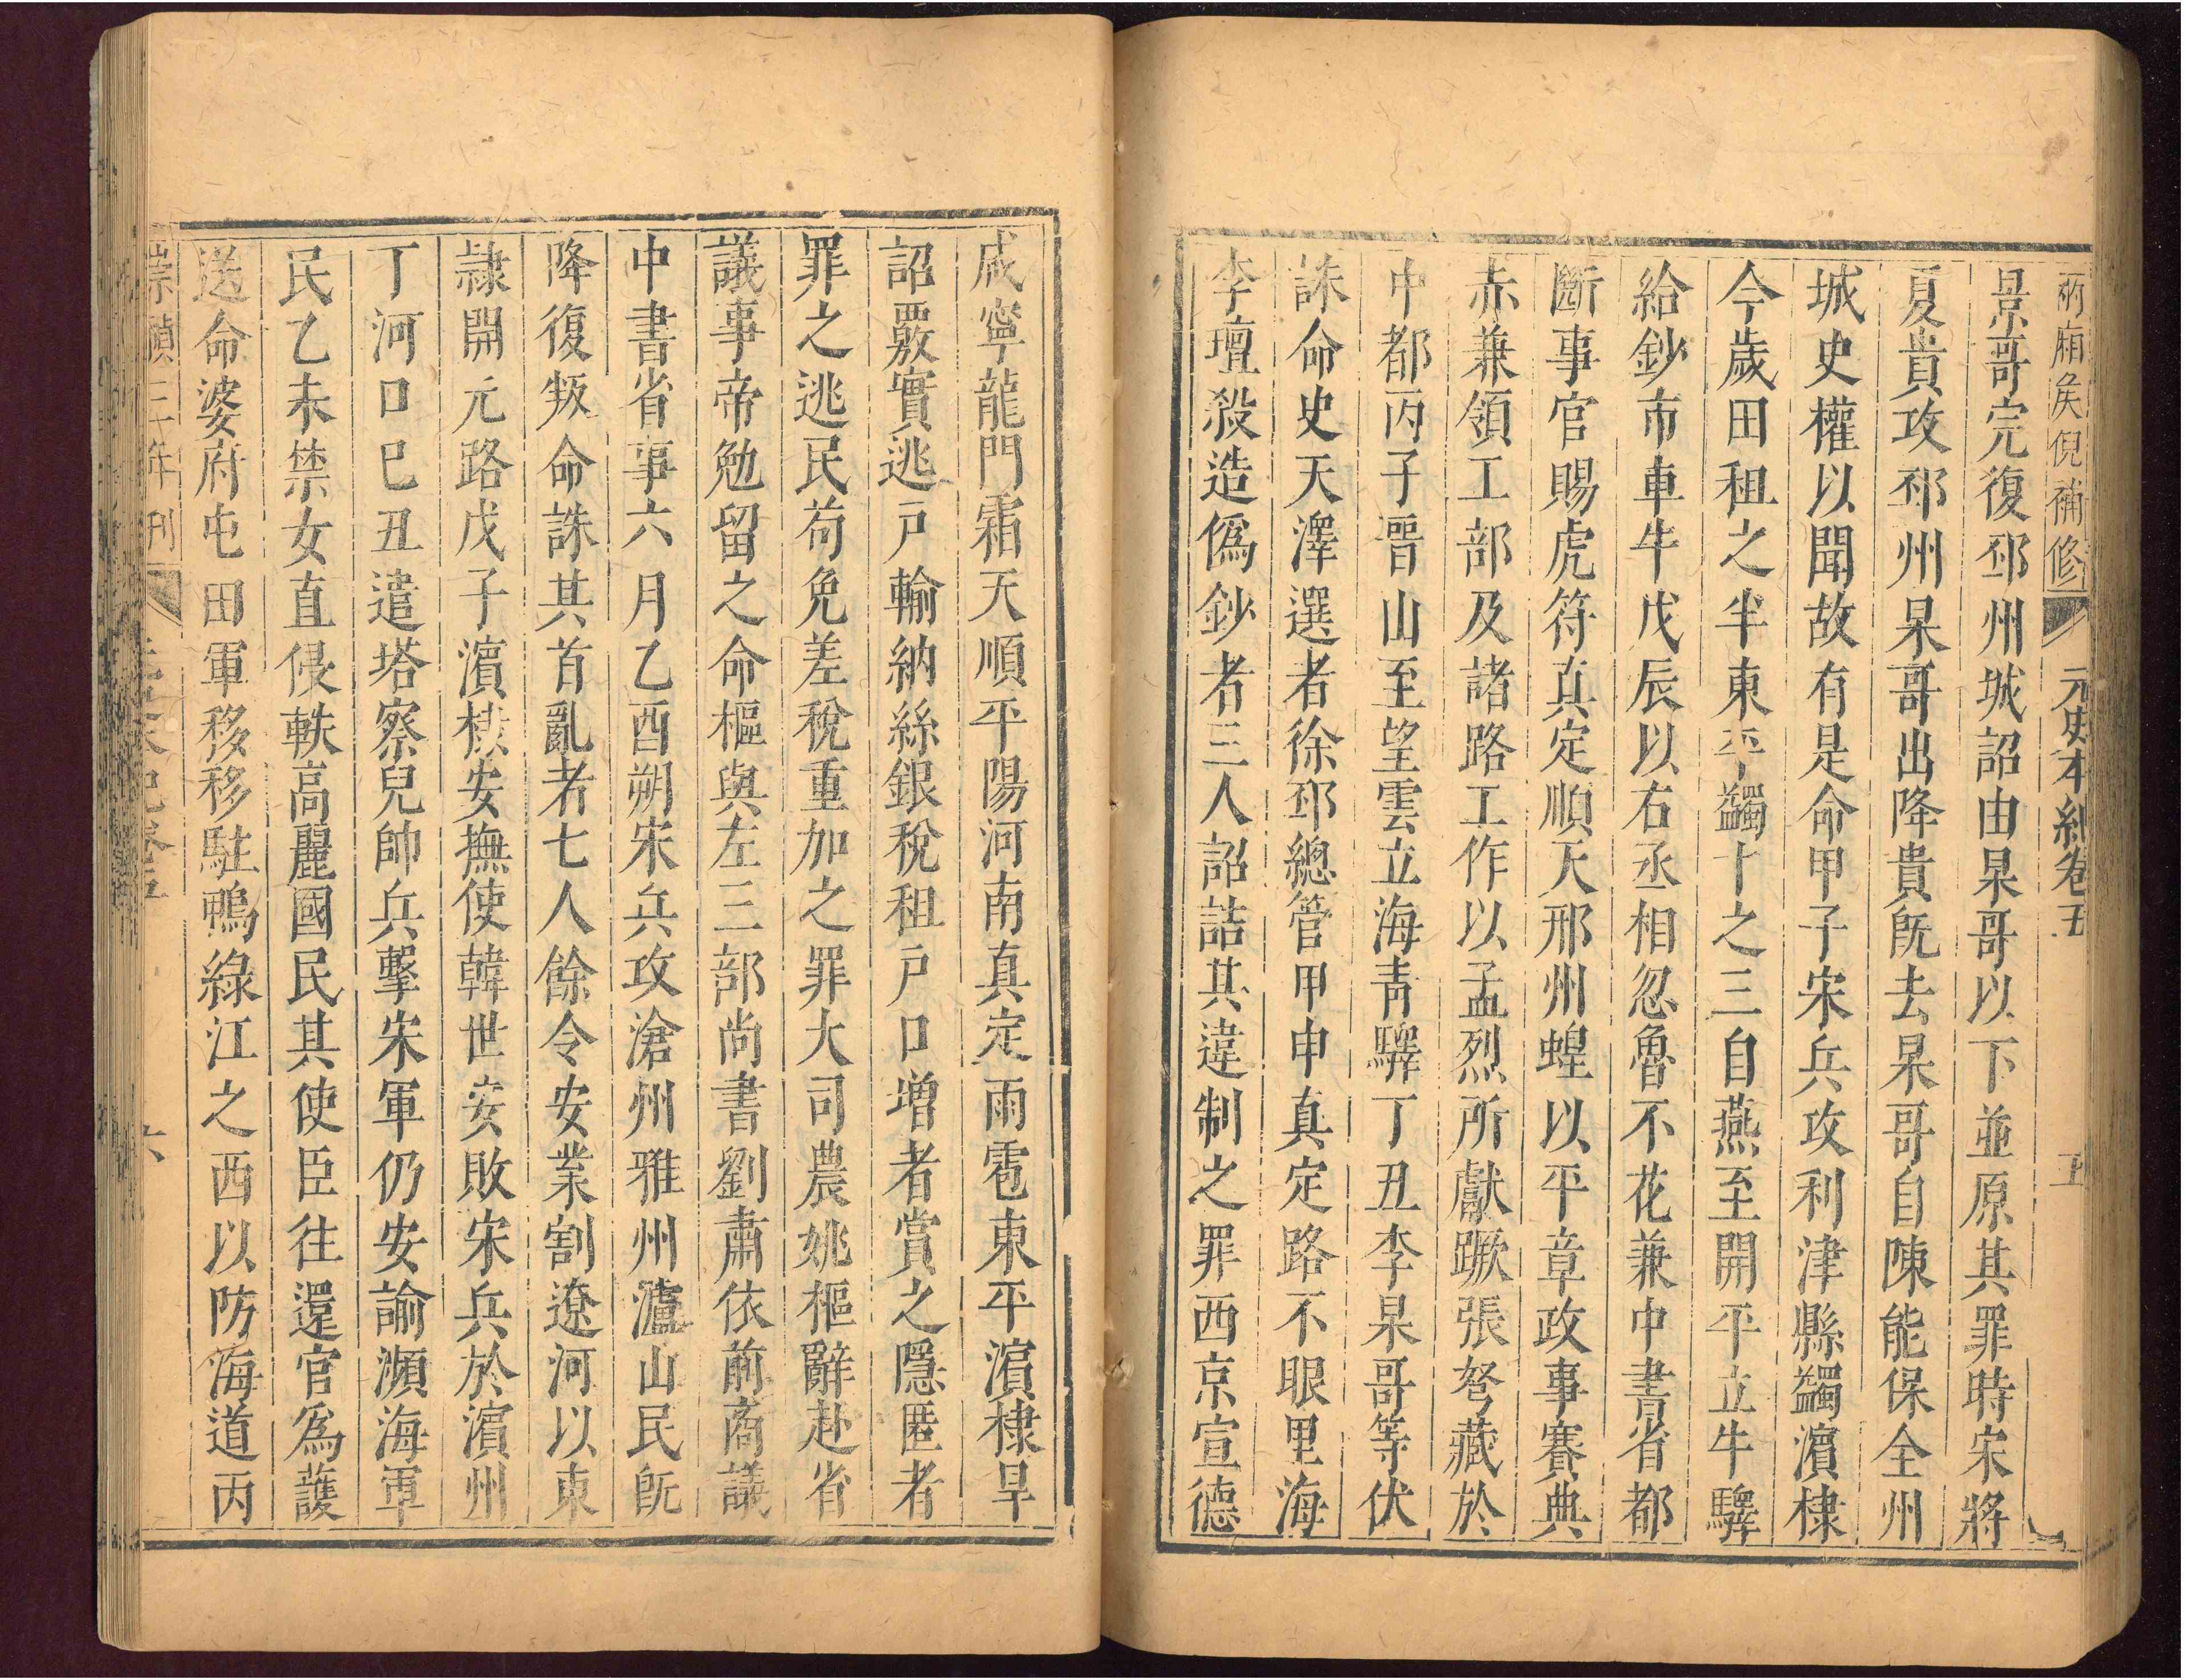 両廂矦倪補修 元史本紀卷五 五
景哥完復邳州城詔由杲哥以下並原其罪時宋將
夏貴攻邳州杲哥出降貴旣去杲哥自陳能保全州
城史權以聞故有是命甲子宋兵攻利津縣蠲濱棣
今歲田租之半東平蠲十之三自燕至開平立牛驛
給鈔市車牛戊辰以右丞相忽魯不花兼中書省都
斷事官賜虎符真定順天邢州蝗以平章政事賽典
赤兼領工部及諸路工作以孟烈所獻蹶張弩藏於
中都丙子晉山至望雲立海青驛丁丑李杲哥等伏
誅命史天澤選者徐邳總管甲申真定路不眼里海
李璮殺造僞鈔者三人詔詰其違制之罪西京宣德
咸寧龍門霜天順平陽河南真定雨雹東平濵棣旱
詔覈實逃戸輸納絲銀稅租戸口增者賞之隱匿者
罪之逃民苟免差稅重加之罪大司農姚樞辭赴省
議事帝勉留之命樞與左三部尚書劉肅依前商議
中書省事六月乙酉朔宋兵攻滄州雅州瀘山民旣
降復叛命誅其首亂者七人餘令安業割遼河以東
隷開元路戊子濵棣安撫使韓世安敗宋兵於濵州
丁河口巳丑遣塔察兒帥兵擊宋軍仍安諭瀕海軍
民乙未禁女直侵軼高麗國民其使臣往還官為護
送命婆府屯田軍移移駐鴨綠江之西以防海道丙
崇禎三年刊 六